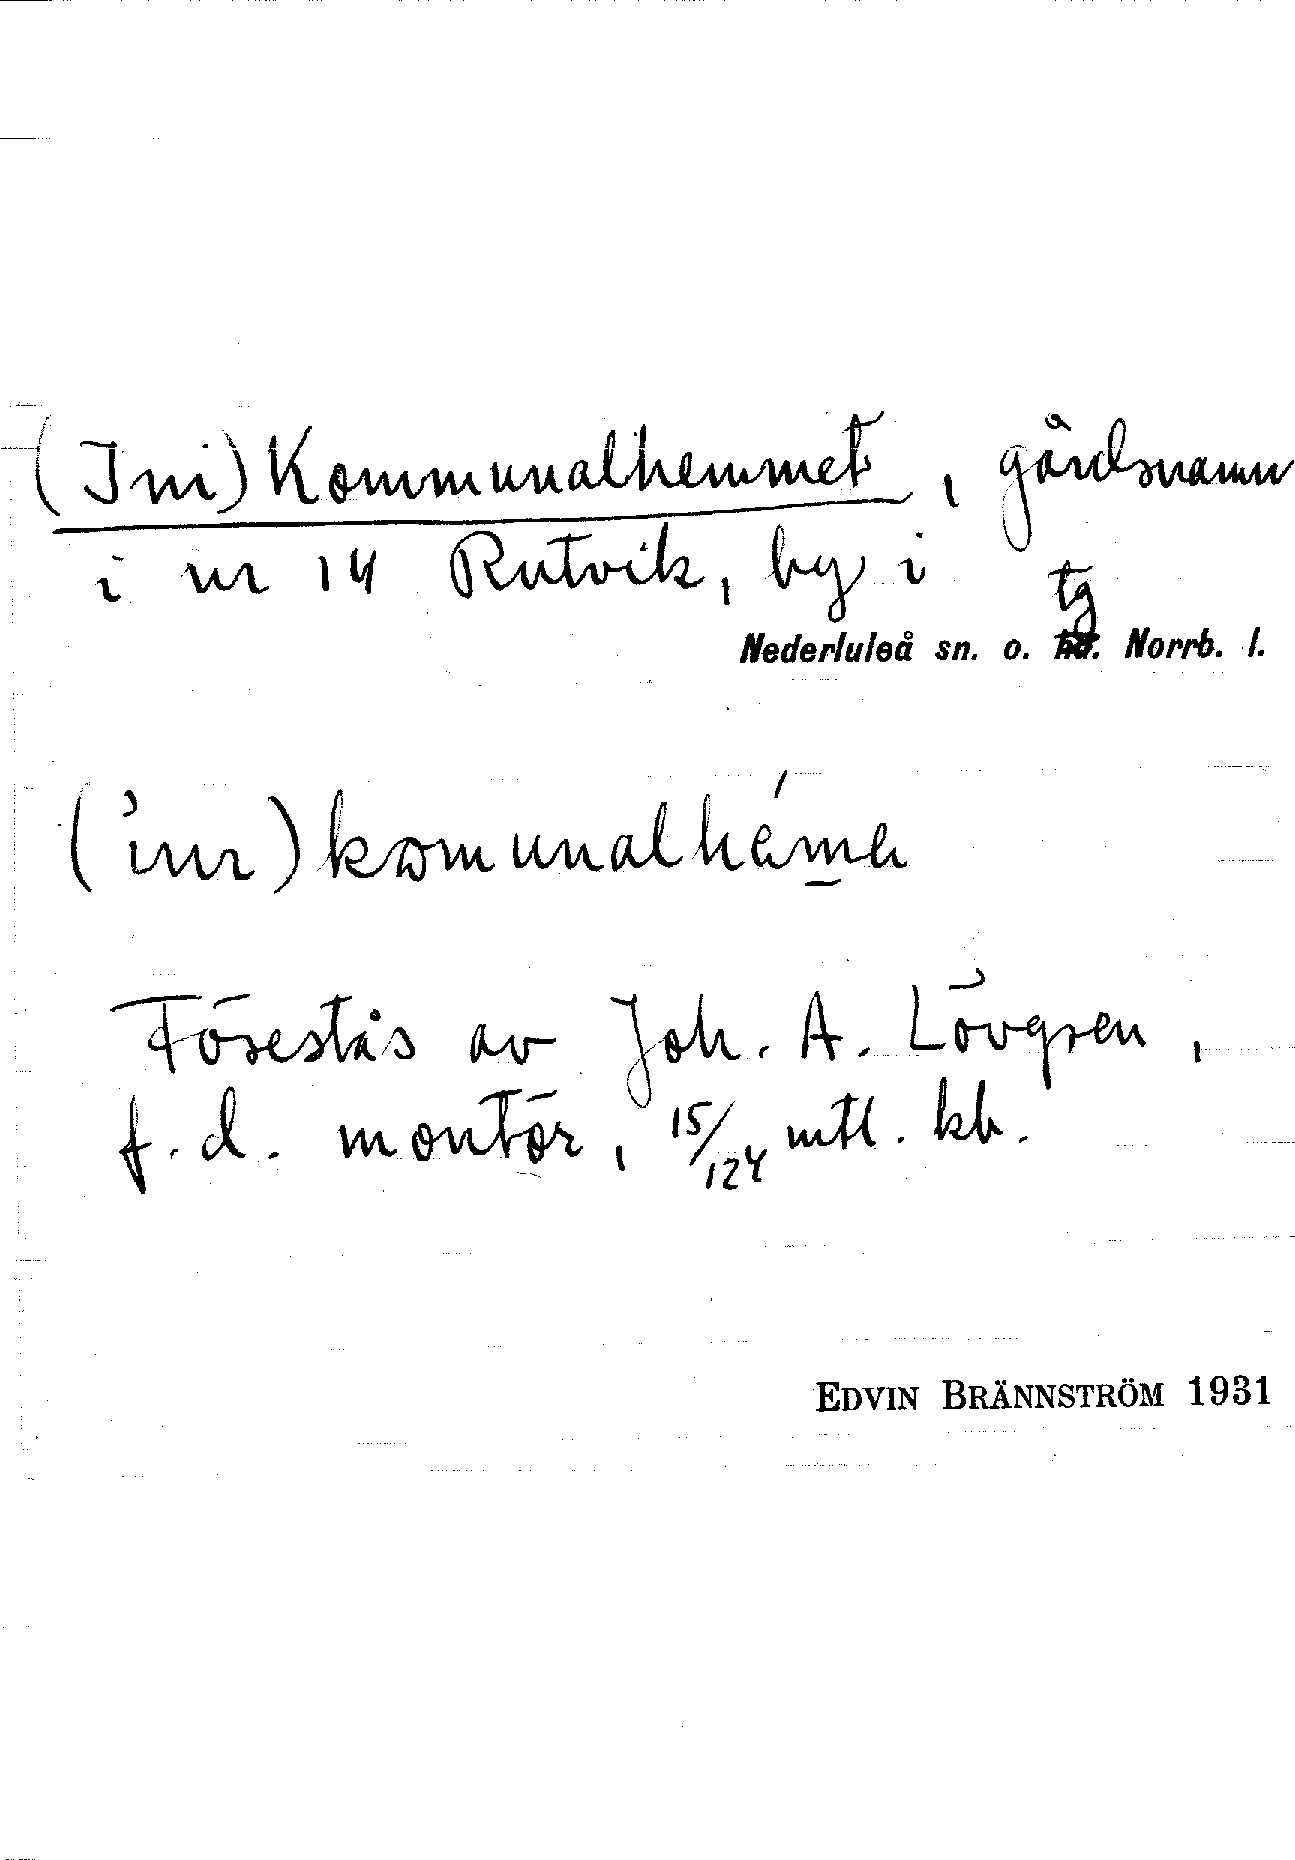 (Ini) Kommunalhemmet, gårdsnamn
i nr 14 Rutvik, by i tg
Nederluleå sn. o. hd. Norrb. l.
(ı̓nɪ) komunalhémɐ
Förestås av Joh. A. Lövgren,
f. d. montör, 15/124 mtl. kb.
EDVIN BRÄNNSTRÖM 1931